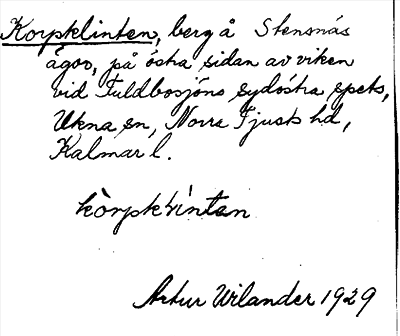 Korpklinten, berg å Stensnäs
ägor, på östra sidan av viken
vid Fuldbosjöns sydöstra spets,
Ukna sn, Norra Tjusts hd,
Kalmar l.
kòrpklìntan
Artur Wilander 1929